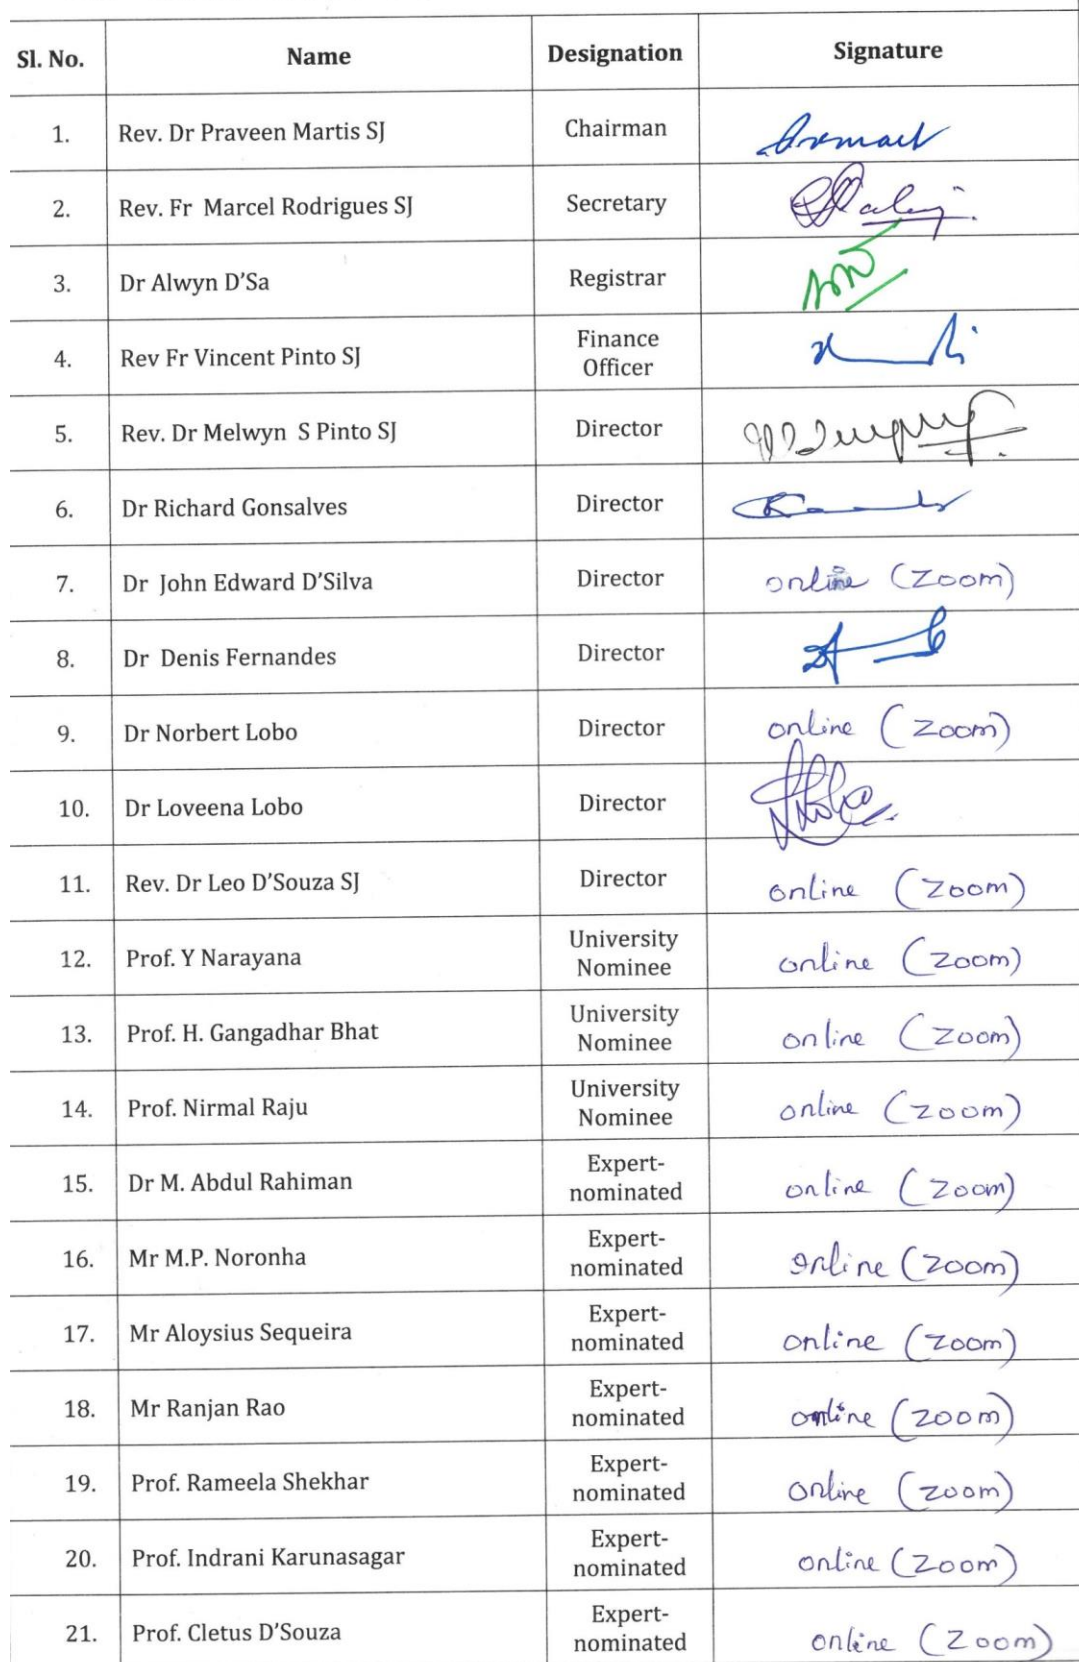 Sl. No. Name Designation Signature
1. Rev. Dr Praveen Martis SJ Chairman
2. Rev. Fr Marcel Rodrigues SJ Secretary
3. Dr Alwyn D'Sa Registrar
4. Rev Fr Vincent Pinto SJ Finance
Officer
5. Rev. Dr Melwyn S Pinto SJ Director
6. Dr Richard Gonsalves Director
7. Dr John Edward D'Silva Director online (Zoom)
8. Dr Denis Fernandes Director
9. Dr Norbert Lobo Director online (Zoom)
10. Dr Loveena Lobo Director
11. Rev. Dr Leo D'Souza SJ Director online (Zoom)
12. Prof. Y Narayana University
Nominee online (Zoom)
13. Prof. H. Gangadhar Bhat University
Nominee online (Zoom)
14. Prof. Nirmal Raju University
Nominee online (Zoom)
15. Dr M. Abdul Rahiman Expert-
nominated online (Zoom)
16. Mr M.P. Noronha Expert-
nominated online (Zoom)
17. Mr Aloysius Sequeira Expert-
nominated online (Zoom)
18. Mr Ranjan Rao Expert-
nominated online (Zoom)
19. Prof. Rameela Shekhar Expert-
nominated online (Zoom)
20. Prof. Indrani Karunasagar Expert-
nominated online (Zoom)
21. Prof. Cletus D'Souza Expert-
nominated online (Zoom)